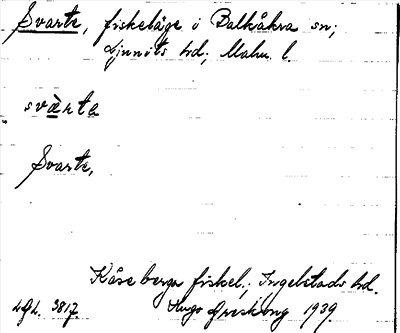 Svarte, fiskeläge i Balkåkra sn;
Ljunits hd; Malm. l.
svàrta
Svarte,
Kåseberga fiskel.; Ingelstads hd.
LAL. 3817. Hugo Areskoug 1939.